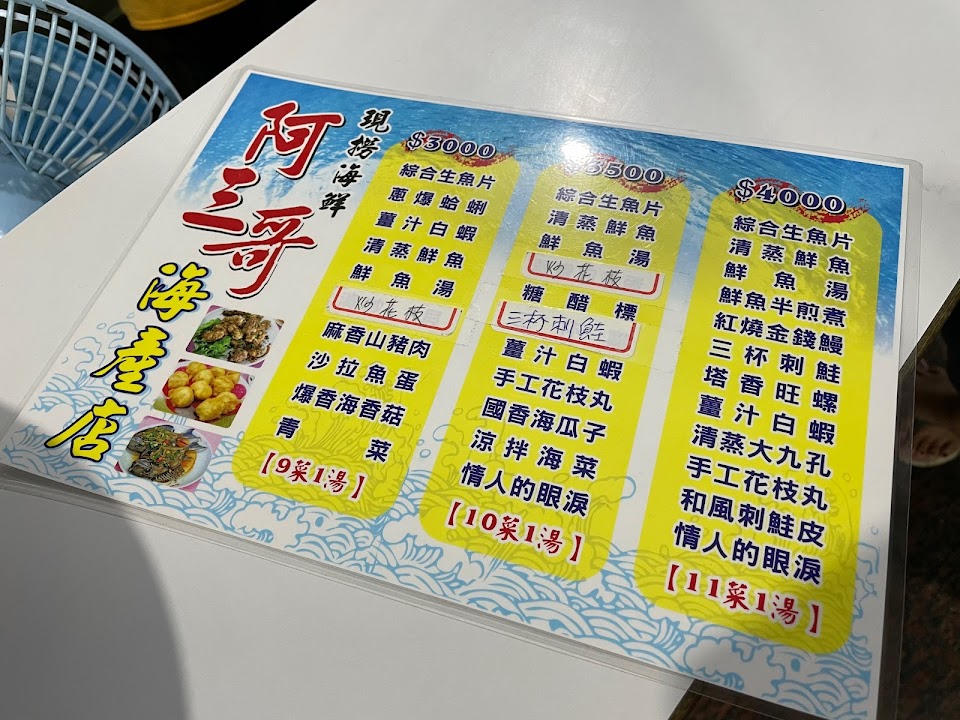 現撈海鮮
阿三哥
海產店
$3000
綜合生魚片
蔥爆蛤蜊
薑汁白蝦
清蒸鮮魚
鮮魚湯
炒花枝
麻香山豬肉
沙拉魚蛋
爆香海香菇
青菜
【9菜1湯】
3500
綜合生魚片
清蒸鮮魚
鮮魚湯
炒花枝
糖醋標
三杯刺鮭
薑汁白蝦
手工花枝丸
國香海瓜子
涼拌海菜
情人的眼淚
【10菜1湯】
$4000
綜合生魚片
清蒸鮮魚
鮮魚湯
鮮魚半煎煮
紅燒金錢鰻
三杯刺鮭
塔香旺螺
薑汁白蝦
清蒸大九孔
手工花枝丸
和風刺鮭皮
情人的眼淚
【11菜1湯】